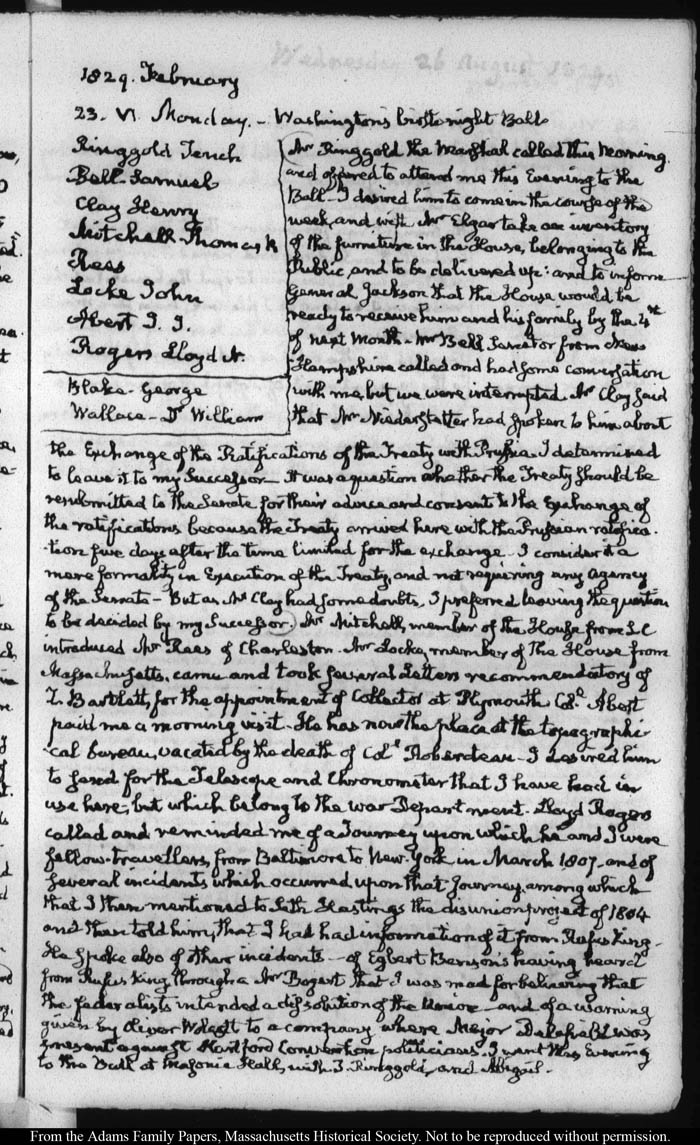 1829. February
23. VI. Monday. - Washington's birth-night Ball
Ringgold Tench
Bell Samuel
Clay Henry
Mitchell Thomas R
Rees
Locke John
Abert J. J.
Rogers Lloyd N.
Blake - George
Wallace - Dr William
Mr Ringgold the Marshal called this Morning.
and offered to attend me this Evening to the
Ball - I desired him to come in the course of the
week, and with Mr Elgar take an inventory
of the furniture in the House, belonging to the
Public, and to be delivered up: and to inform
General Jackson that the House would be
ready to receive him and his family by the 4th
of next Month - Mr Bell Senator from New
Hampshire called and had some conversation
with me, but we were interrupted. Mr Clay said
that Mr Niederstetter had spoken to him about
the Exchange of the Ratifications of the Treaty with Prussia. I determined
to leave it to my Successor - It was a question whether the Treaty should be
resubmitted to the Senate for their advice and consent to the Exchange of
the ratifications because the Treaty arrived here with the Prussian ratifica-
-tion five days after the time limited for the exchange - I consider it a
mere formality in Execution of the Treaty, and not requiring any agency
of the Senate - But as Mr Clay had some doubts, I preferred leaving the question
to be decided by my Successor. Mr Mitchell, member of the House from S.C
introduced Mr Rees of Charleston - Mr Locke, member of the House from
Massachusetts, came and took several Letters recommendatory of
Z. Bartlett, for the appointment of Collector at Plymouth Coll Abert
paid me a morning visit - He has now the place at the topographi-
-cal bureau, vacated by the death of Coll Roberdeau - I desired him
to send for the Telescope and Chronometer that I have had in
use here, but which belong to the War Department. Lloyd Rogers
called and reminded me of a Journey upon which he and I were
fellow-travellers, from Baltimore to New-York in March 1807. and of
several incidents which occurred upon that Journey, among which
that I then mentioned to Seth Hastings the disunion project of 1804
and then told him, that I had had information of it from Rufus King -
He spoke also of other incidents - of Egbert Benson's having heard
from Rufus King through a Mr Bogert that I was mad for believing that
the federalists intended a dissolution of the Union - and of a warning
given by Oliver Wolcott to a company where Major Delafield was
present against Hartford Convention politicians. I went this Evening
to the Ball at Masonic Hall, with T. Ringgold, and Abigail.
From the Adams Family Papers, Massachusetts Historical Society. Not to be reproduced without permission.